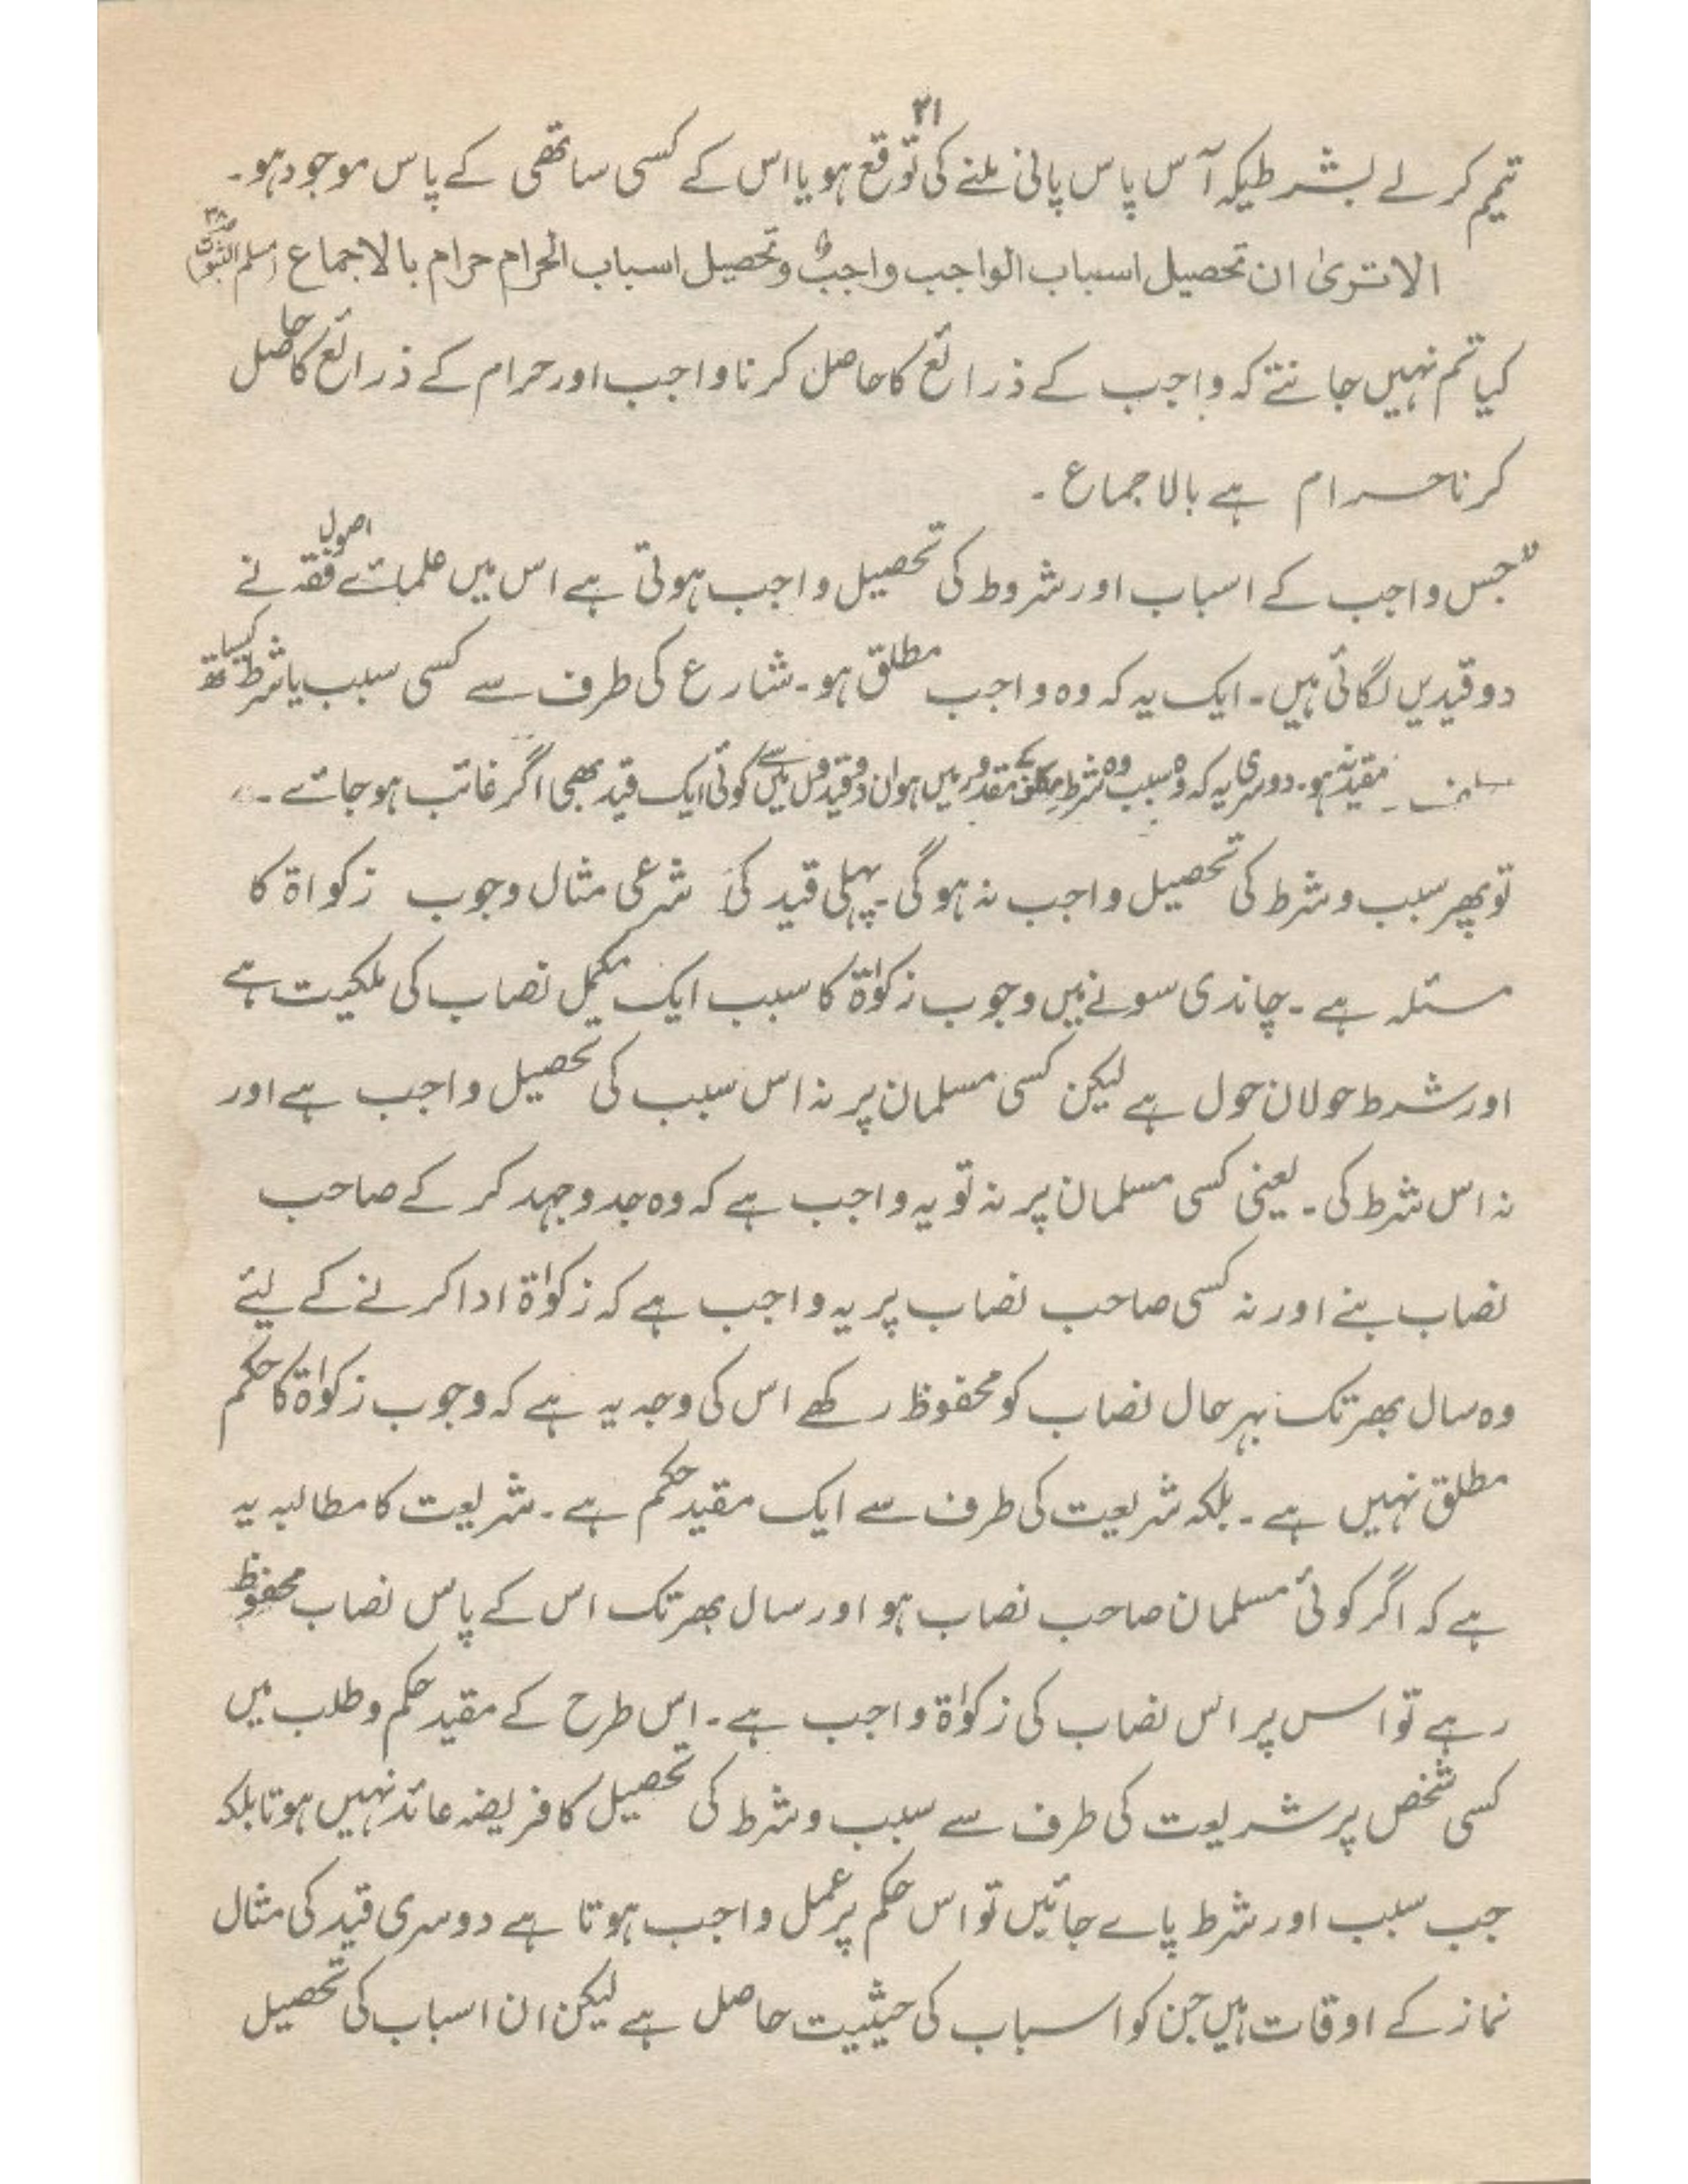 ۲۱
تیمم کر لے بشرطیکہ آس پاس پانی ملنے کی توقع ہو یا اس کے کسی ساتھی کے پاس موجود ہو۔
الاتریٰ ان تحصیل اسباب الواجب واجبٌ وتحصیل اسباب الحرام حرام بالاجماع (مسلم الثبوت ص۳۸)
کیا تم نہیں جانتے کہ واجب کے ذرائع کا حاصل کرنا واجب اور حرام کے ذرائع کا حاصل
کرنا حرام ہے بالاجماع ۔
"جس واجب کے اسباب اور شروط کی تحصیل واجب ہوتی ہے اس میں علمائے اصول فقہ نے
دو قیدیں لگائی ہیں۔ ایک یہ کہ وہ واجب مطلق ہو۔ شارع کی طرف سے کسی سبب یا شرط کیساتھ
مقید نہ ہو۔ دوسری یہ کہ وہ سبب وہ شرط مکلف کے مقدور میں ہو ان دو قیدوں میں سے کوئی ایک قید بھی اگر غائب ہو جائے۔
تو پھر سبب و شرط کی تحصیل واجب نہ ہوگی۔ پہلی قید کی شرعی مثال وجوب زکواۃ کا
مسئلہ ہے۔ چاندی سونے میں وجوب زکوٰۃ کا سبب ایک مکمل نصاب کی ملکیت ہے
اور شرط حولان حول ہے لیکن کسی مسلمان پر نہ اس سبب کی تحصیل واجب ہے اور
نہ اس شرط کی۔ یعنی کسی مسلمان پر نہ تو یہ واجب ہے کہ وہ جد وجہد کر کے صاحب
نصاب بنے اور نہ کسی صاحب نصاب پر یہ واجب ہے کہ زکوٰۃ ادا کرنے کے لیئے
وہ سال بھر تک بہر حال نصاب کو محفوظ رکھے اس کی وجہ یہ ہے کہ وجوب زکوٰۃ کا حکم
مطلق نہیں ہے۔ بلکہ شریعت کی طرف سے ایک مقید حکم ہے۔ شریعت کا مطالبہ یہ
ہے کہ اگر کوئی مسلمان صاحب نصاب ہو اور سال بھر تک اس کے پاس نصاب محفوظ
رہے تو اس پر اس نصاب کی زکوٰۃ واجب ہے۔ اس طرح کے مقید حکم و طلب میں
کسی شخص پر شریعت کی طرف سے سبب و شرط کی تحصیل کا فریضہ عائد نہیں ہوتا بلکہ
جب سبب اور شرط پاے جائیں تو اس حکم پر عمل واجب ہوتا ہے دوسری قید کی مثال
نماز کے اوقات ہیں جن کو اسباب کی حیثیت حاصل ہے لیکن ان اسباب کی تحصیل